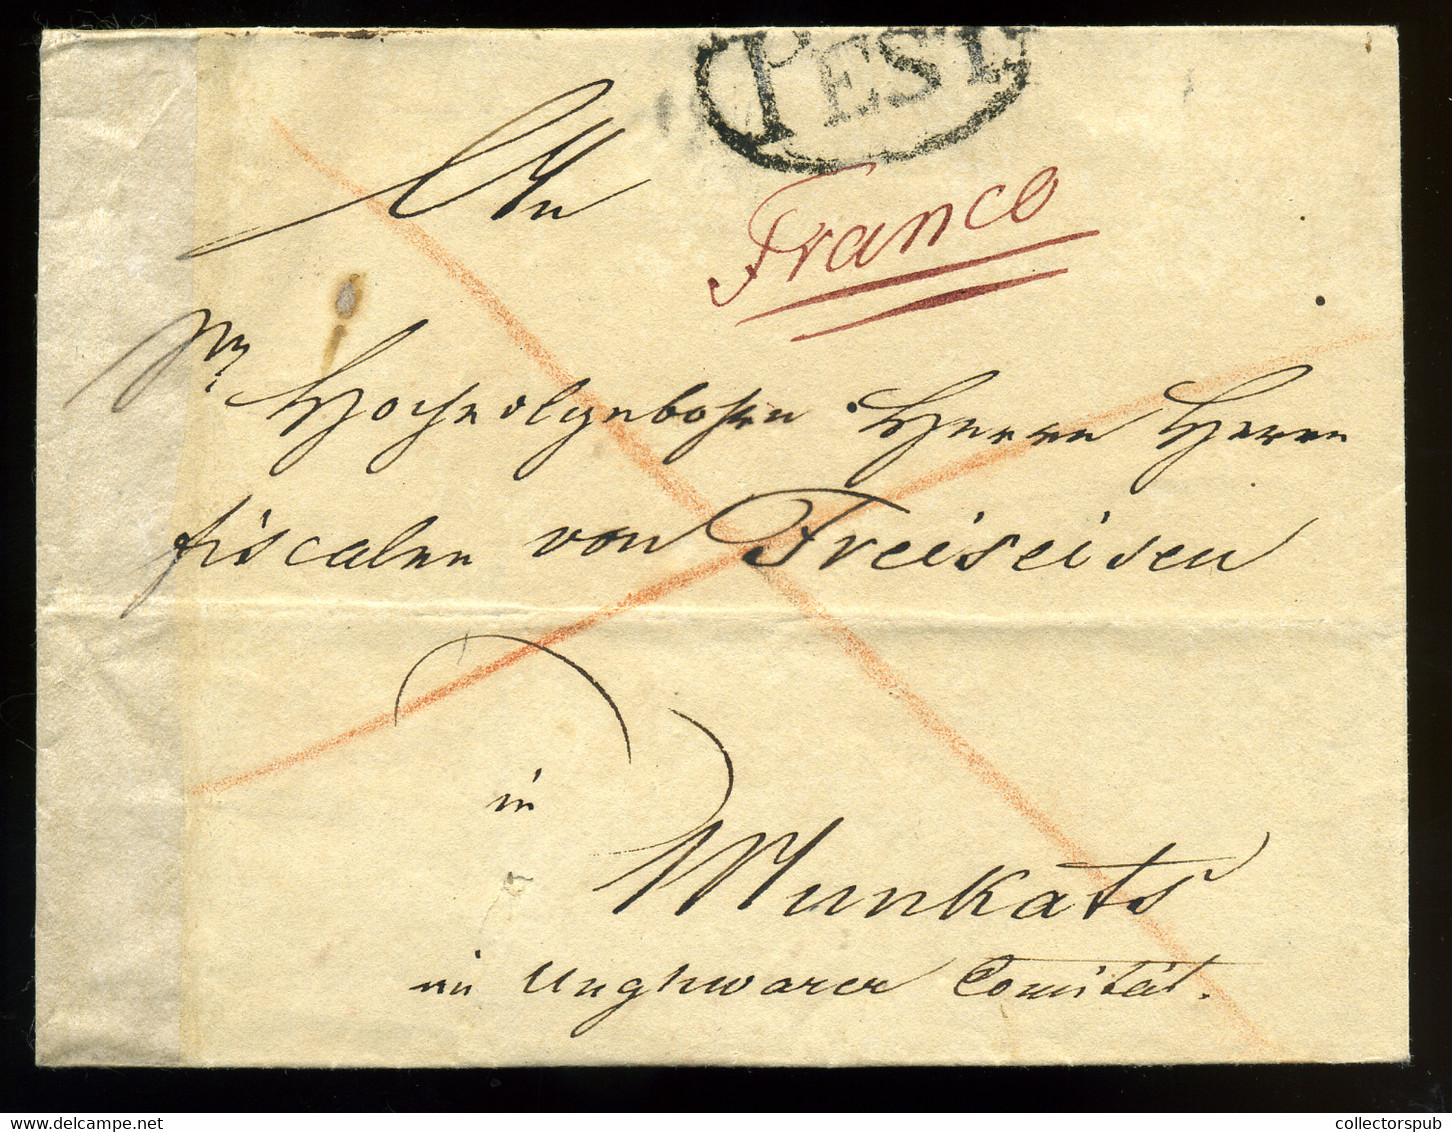 PEST
Franco
An
Hochwolgebohrn Herrn Herrn
fiscalen von Freiseisen
in
Munkats
im Unghwarer Comität.
collectorspub